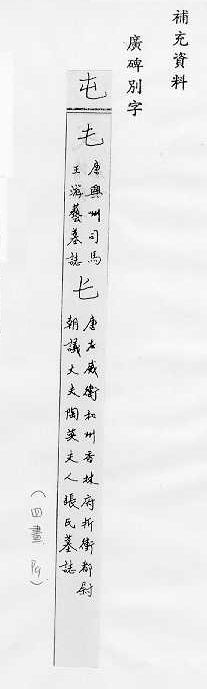 補充資料
廣碑別字
屯
唐興州司馬
王游藝墓誌
唐左威衛和州香林府折衝都尉
朝議大夫陶英夫人張氏墓誌
(四畫 P9)